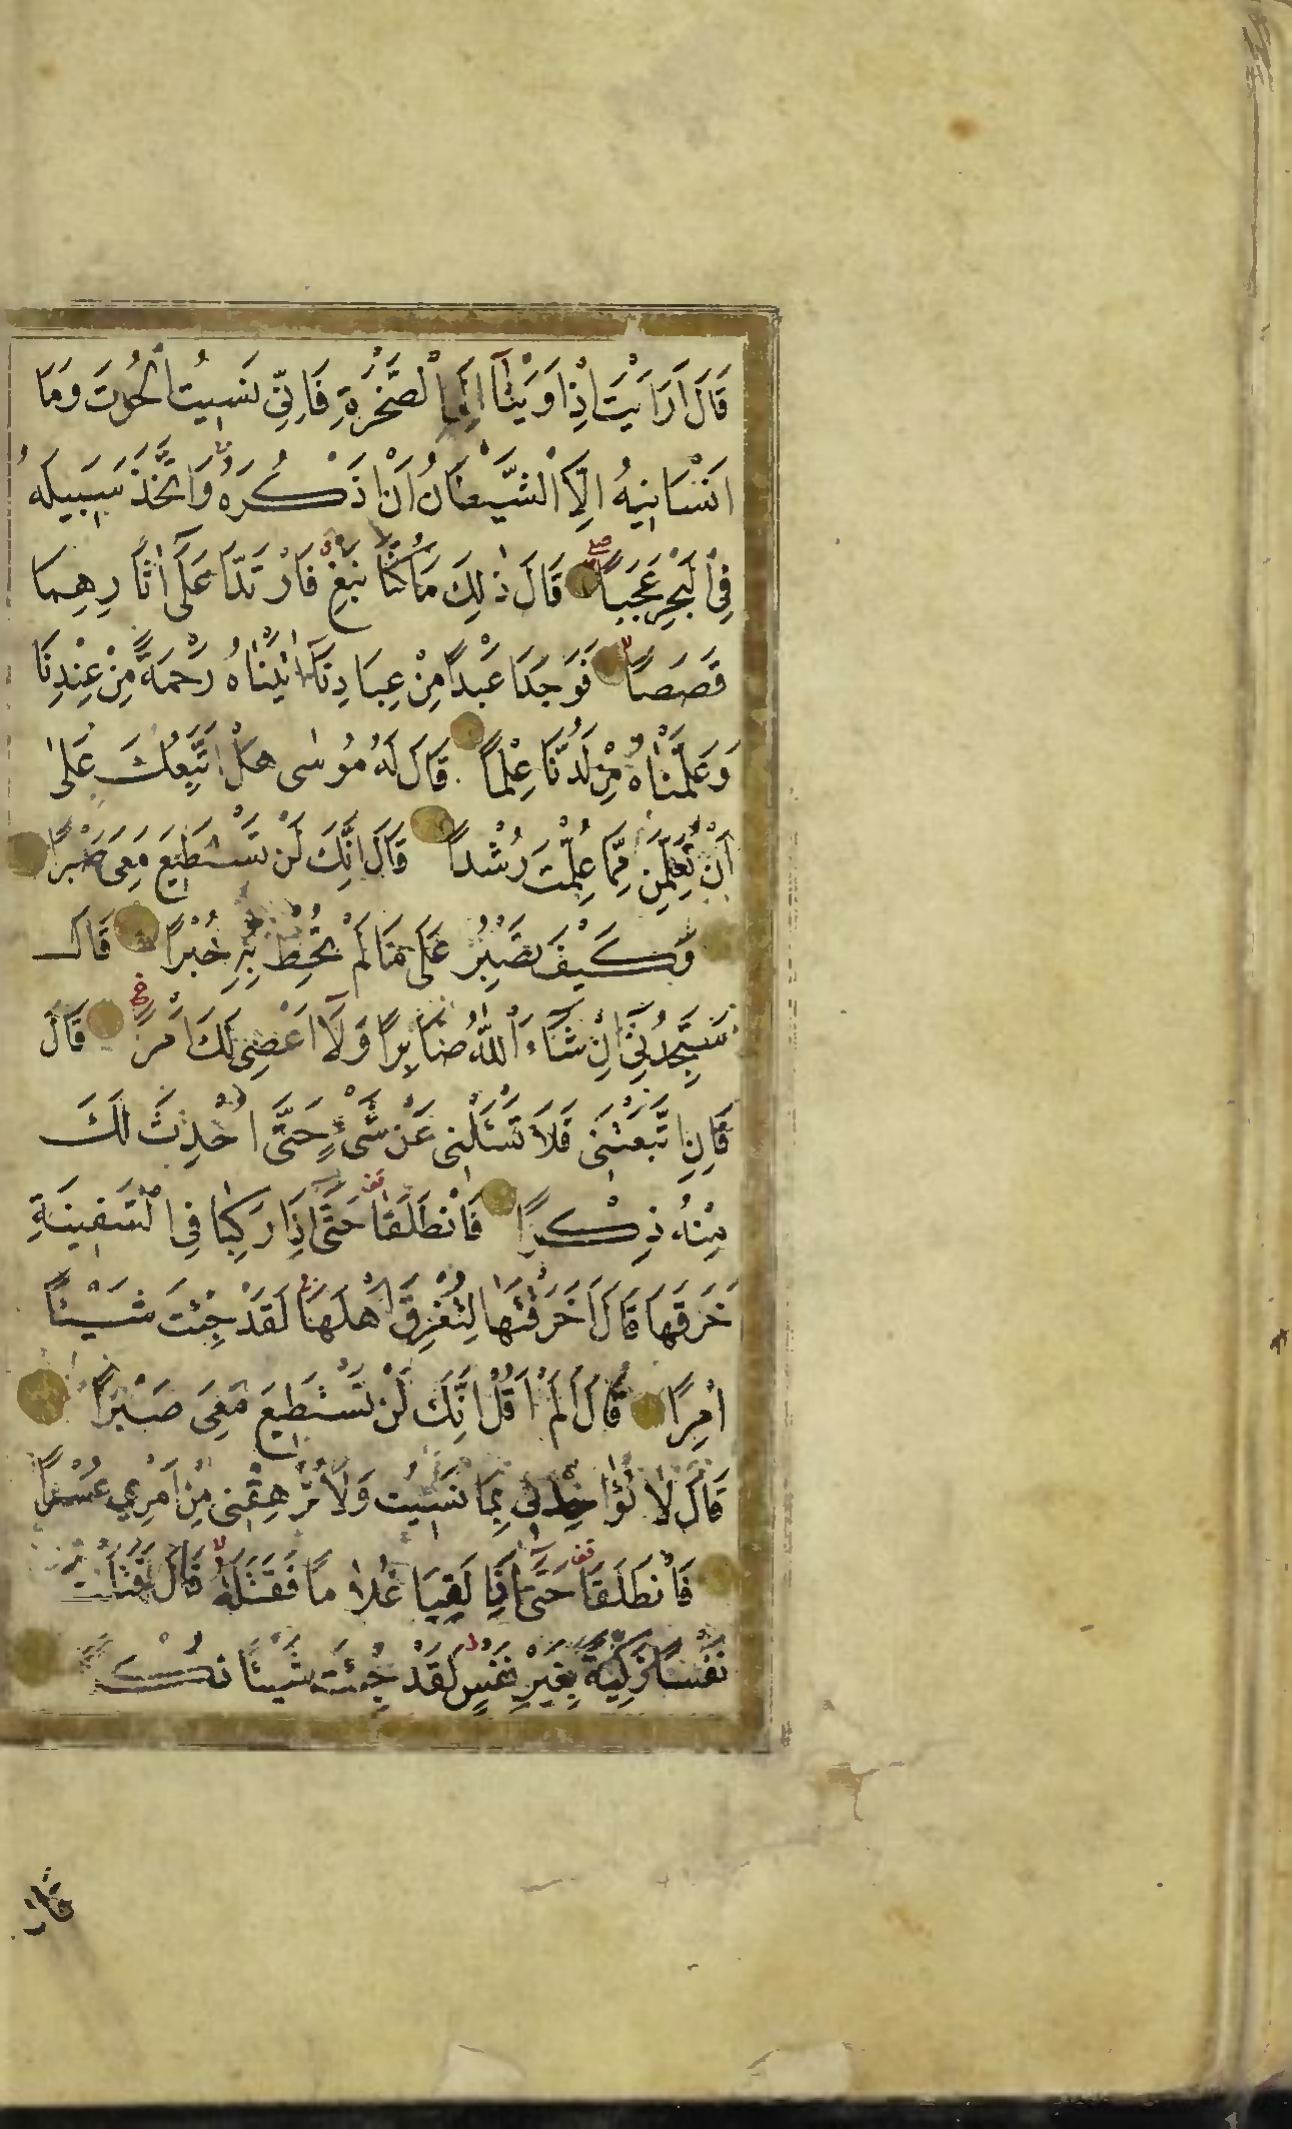 قَالَ اَرَاَيْتَ اِذْ اَوَيْنَٓا اِلَى الصَّخْرَةِ فَاِنِّى نَسِيتُ الْحُوتَ وَمَا
اَنْسَانِيهُ اِلَّا الشَّيْطَانُ اَنْ اَذْكُرَهُ وَاتَّخَذَ سَبِيلَهُ
فِى الْبَحْرِ عَجَبًا قَالَ ذٰلِكَ مَا كُنَّا نَبْغِ فَارْتَدَّا عَلٰٓى اٰثَارِهِمَا
قَصَصًا فَوَجَدَا عَبْدًا مِنْ عِبَادِنَٓا اٰتَيْنَاهُ رَحْمَةً مِنْ عِنْدِنَا
وَعَلَّمْنَاهُ مِنْ لَدُنَّا عِلْمًا قَالَ لَهُ مُوسٰى هَلْ اَتَّبِعُكَ عَلٰٓى
اَنْ تُعَلِّمَنِ مِمَّا عُلِّمْتَ رُشْدًا قَالَ اِنَّكَ لَنْ تَسْتَطِيعَ مَعِىَ صَبْرًا
وَكَيْفَ تَصْبِرُ عَلٰى مَا لَمْ تُحِطْ بِهِ خُبْرًا قَالَ
سَتَجِدُنِٓى اِنْ شَٓاءَ اللّٰهُ صَابِرًا وَلَٓا اَعْصِى لَكَ اَمْرًا قَالَ
فَاِنِ اتَّبَعْتَنِى فَلَا تَسْـَٔلْنِى عَنْ شَىْءٍ حَتّٰٓى اُحْدِثَ لَكَ
مِنْهُ ذِكْرًا فَانْطَلَقَا حَتّٰٓى اِذَا رَكِبَا فِى السَّفِينَةِ
خَرَقَهَا قَالَ اَخَرَقْتَهَا لِتُغْرِقَ اَهْلَهَا لَقَدْ جِئْتَ شَيْـًٔا
اِمْرًا قَالَ اَلَمْ اَقُلْ اِنَّكَ لَنْ تَسْتَطِيعَ مَعِىَ صَبْرًا
قَالَ لَا تُؤَاخِذْنِى بِمَا نَسِيتُ وَلَا تُرْهِقْنِى مِنْ اَمْرِى عُسْرًا
فَانْطَلَقَا حَتّٰٓى اِذَا لَقِيَا غُلَامًا فَقَتَلَهُ قَالَ اَقَتَلْتَ
نَفْسًا زَكِيَّةً بِغَيْرِ نَفْسٍ لَقَدْ جِئْتَ شَيْـًٔا نُكْرًا
قَالَ